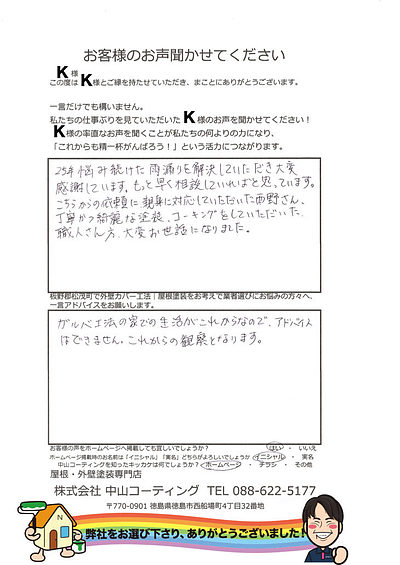 お客様のお声聞かせてください
K 様
この度は K様とご縁を持たせていただき、まことにありがとうございます。
一言だけでも構いません。
私たちの仕事ぶりを見ていただいた K様のお声を聞かせてください！
K様の率直なお声を聞くことが私たちの何よりの力になり、
「これからも精一杯がんばろう！」という活力につながります。
25年悩み続けた雨漏りを解決していただき大変
感謝しています。もっと早く相談していればと思っています。
こちらからの依頼に親身に対応していただいた西野さん、
丁寧かつ綺麗な塗装、コーキングをしていただいた
職人さん方、大変お世話になりました。
板野郡松茂町で外壁カバー工法｜屋根塗装をお考えで業者選びにお悩みの方々へ、
一言アドバイスをお願いします。
ガルバ工法の家での生活がこれからなので、アドバイス
はできません。これからの観察となります。
お客様の声をホームページへ掲載しても宜しいでしょうか？ はい ・ いいえ
ホームページ掲載時のお名前は「イニシャル」「実名」どちらがよろしいでしょうか イニシャル ・ 実名
中山コーティングを知ったキッカケは何でしょうか？ ホームページ ・ チラシ ・ その他
屋根・外壁塗装専門店
株式会社 中山コーティング TEL 088-622-5177
〒770-0901 徳島県徳島市西船場町4丁目32番地
弊社をお選び下さり、ありがとうございました！